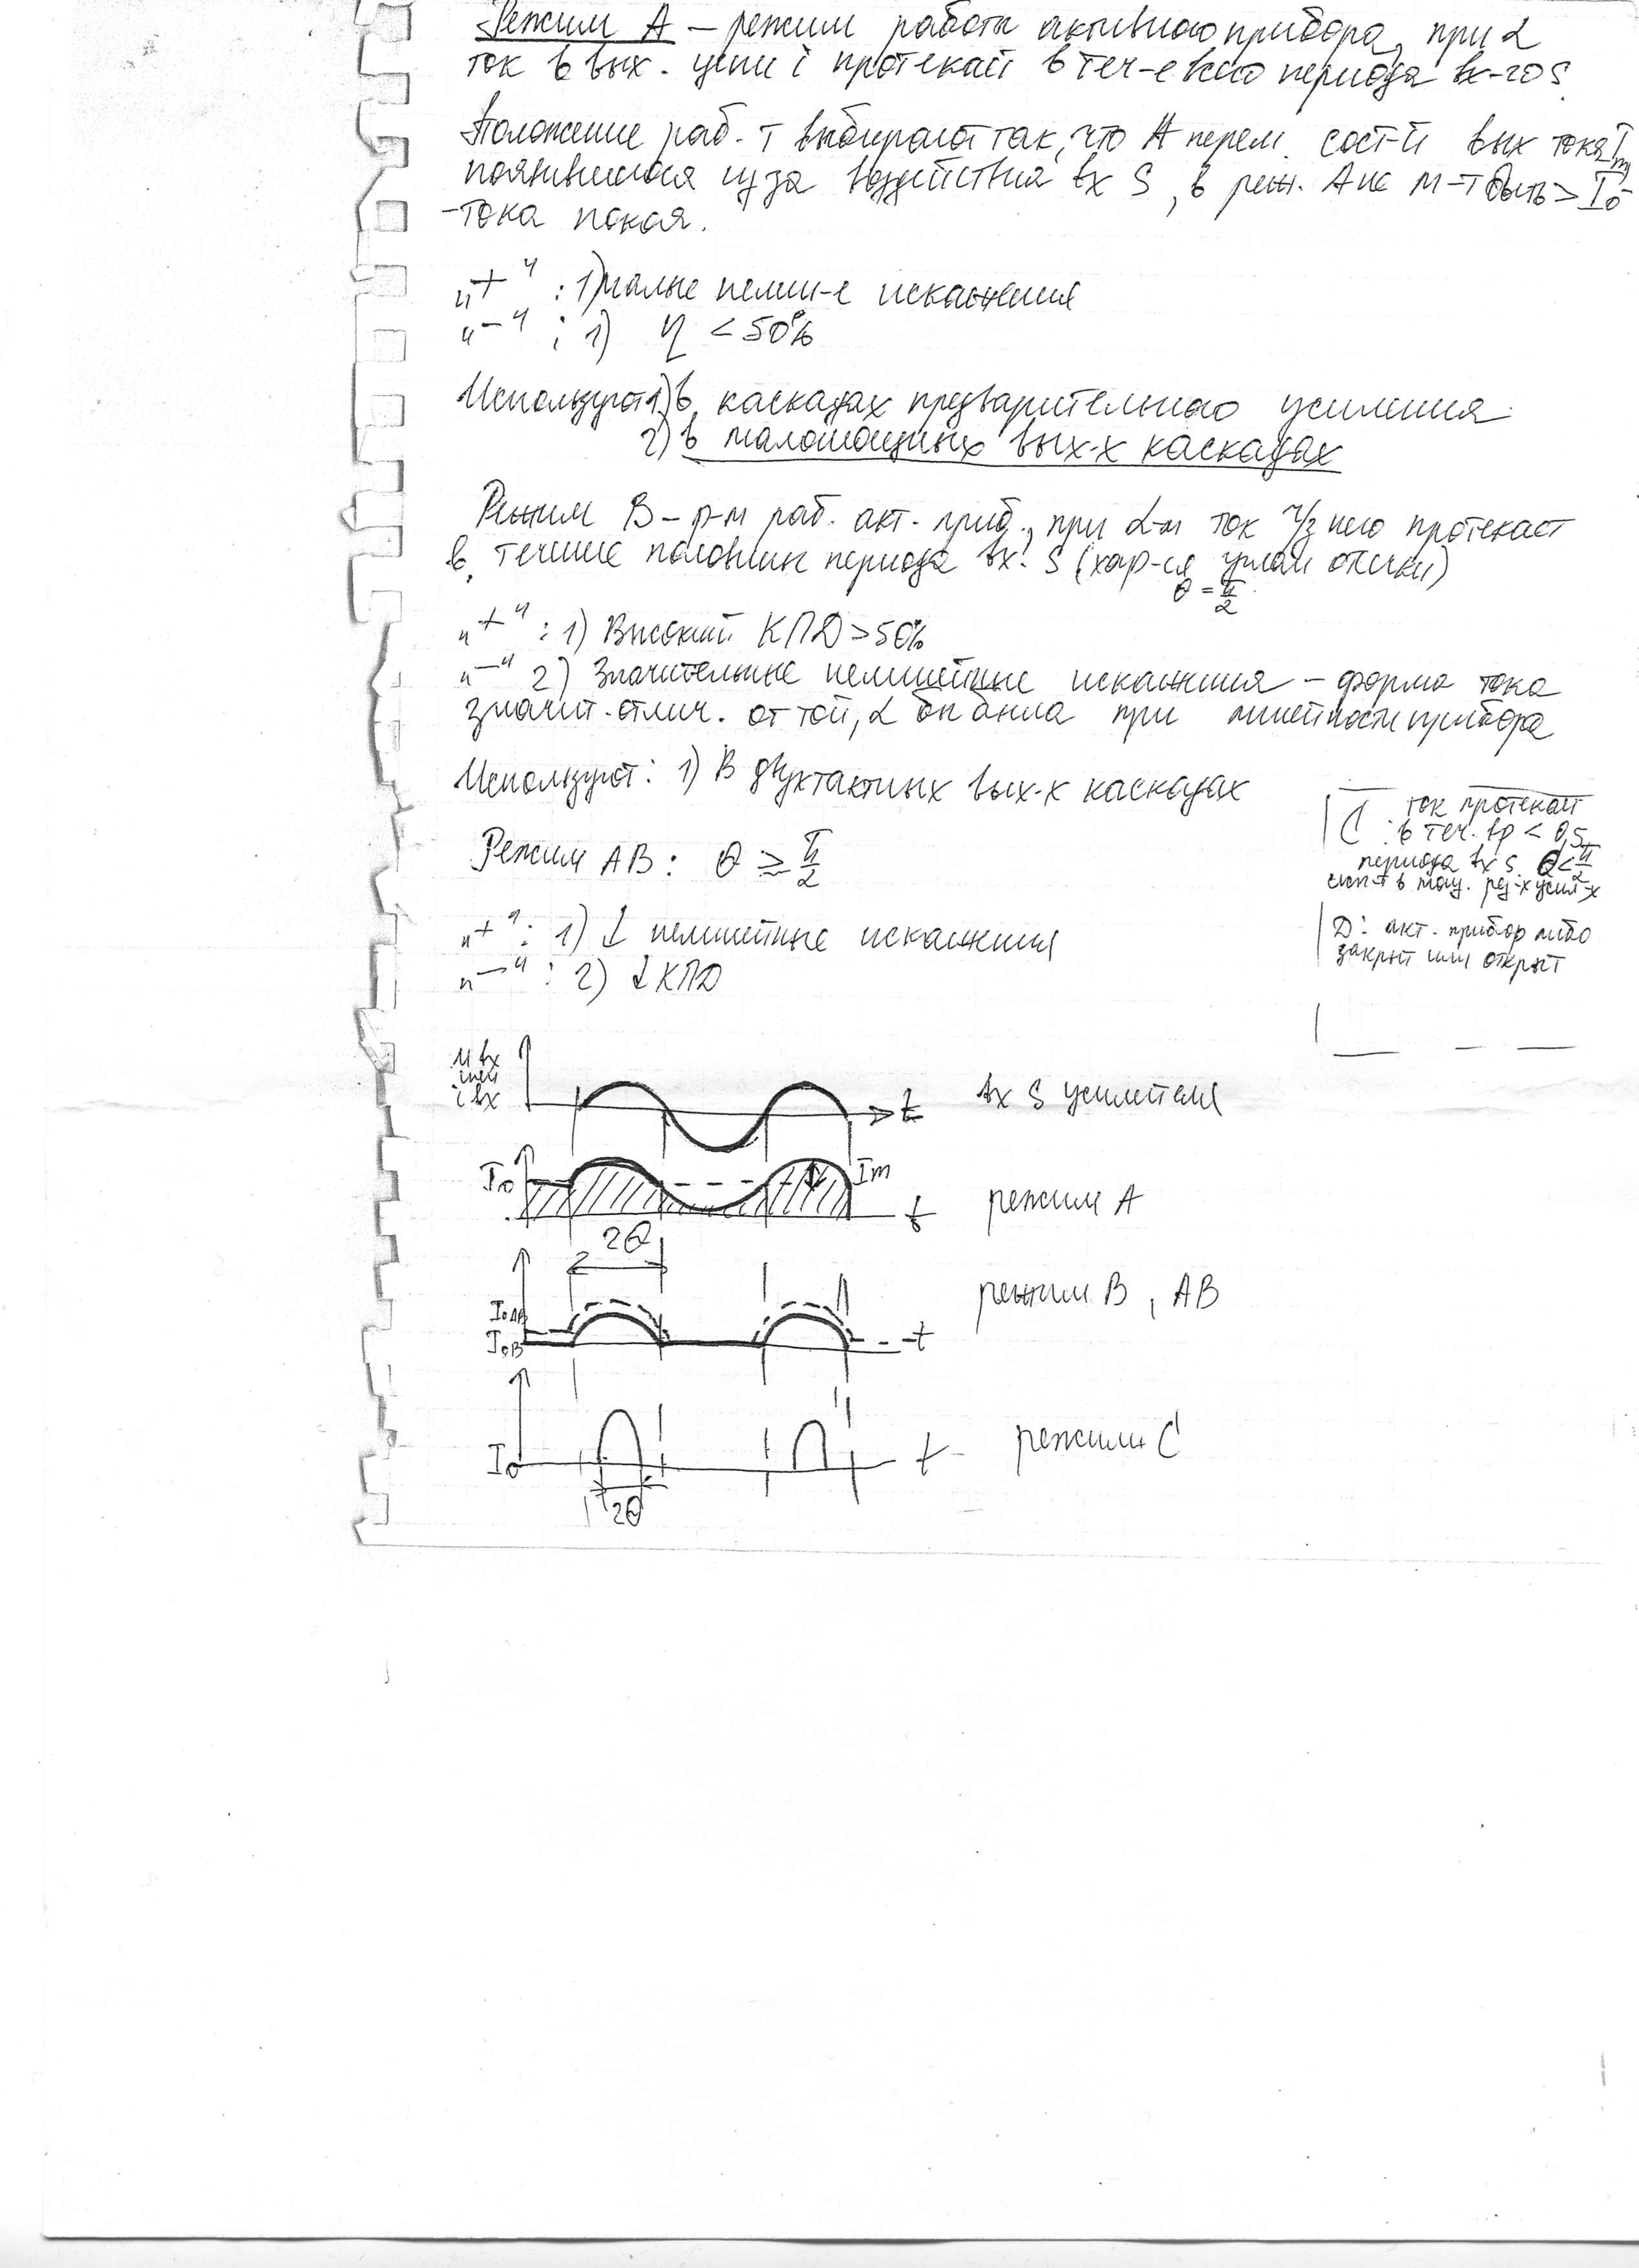 Режим А – режим работы активного прибора, при α
ток в вых. цепи i протекает в теч-е всего периода вх-го S.
Положение раб. т выбирают так, что А перем. сост-й вых тока Im
появившегося из за воздействия вх S, в реж. А не м-т быть > I0 -
- тока покоя.
„+“ : 1) малые нелин-е искажения
„–“ : 1) η < 50%
Использует 1) в каскадах предварительного усиления
2) в маломощных вых-х каскадах
Режим В – р-м раб. акт. приб., при α-м ток ч/з него протекает
в течение половины периода вх. S (хар-ся углом отсечки)
θ = π/2
„+“ : 1) Высокий КПД > 50%
„–“ 2) Значительные нелинейные искажения – форма тока
значит. отлич. от той, α бы была при линейности прибора
Использует: 1) В двухтактных вых-х каскадах
Режим АВ: θ ≥ π/2
„+“ : 1) ↓ нелинейные искажения
„–“ : 2) ↓ КПД
C : ток протекает
в теч. вр < 0,5
периода вх S. θ < π/2
исп-т в мощ. рез-х усил-х
D: акт. прибор либо
закрыт или открыт
u вх
или
i вх
t
вх S усилителя
I0
Im
t
режим А
2θ
I0АВ
I0В
t
режим В, АВ
I0
t
режим С
2θ